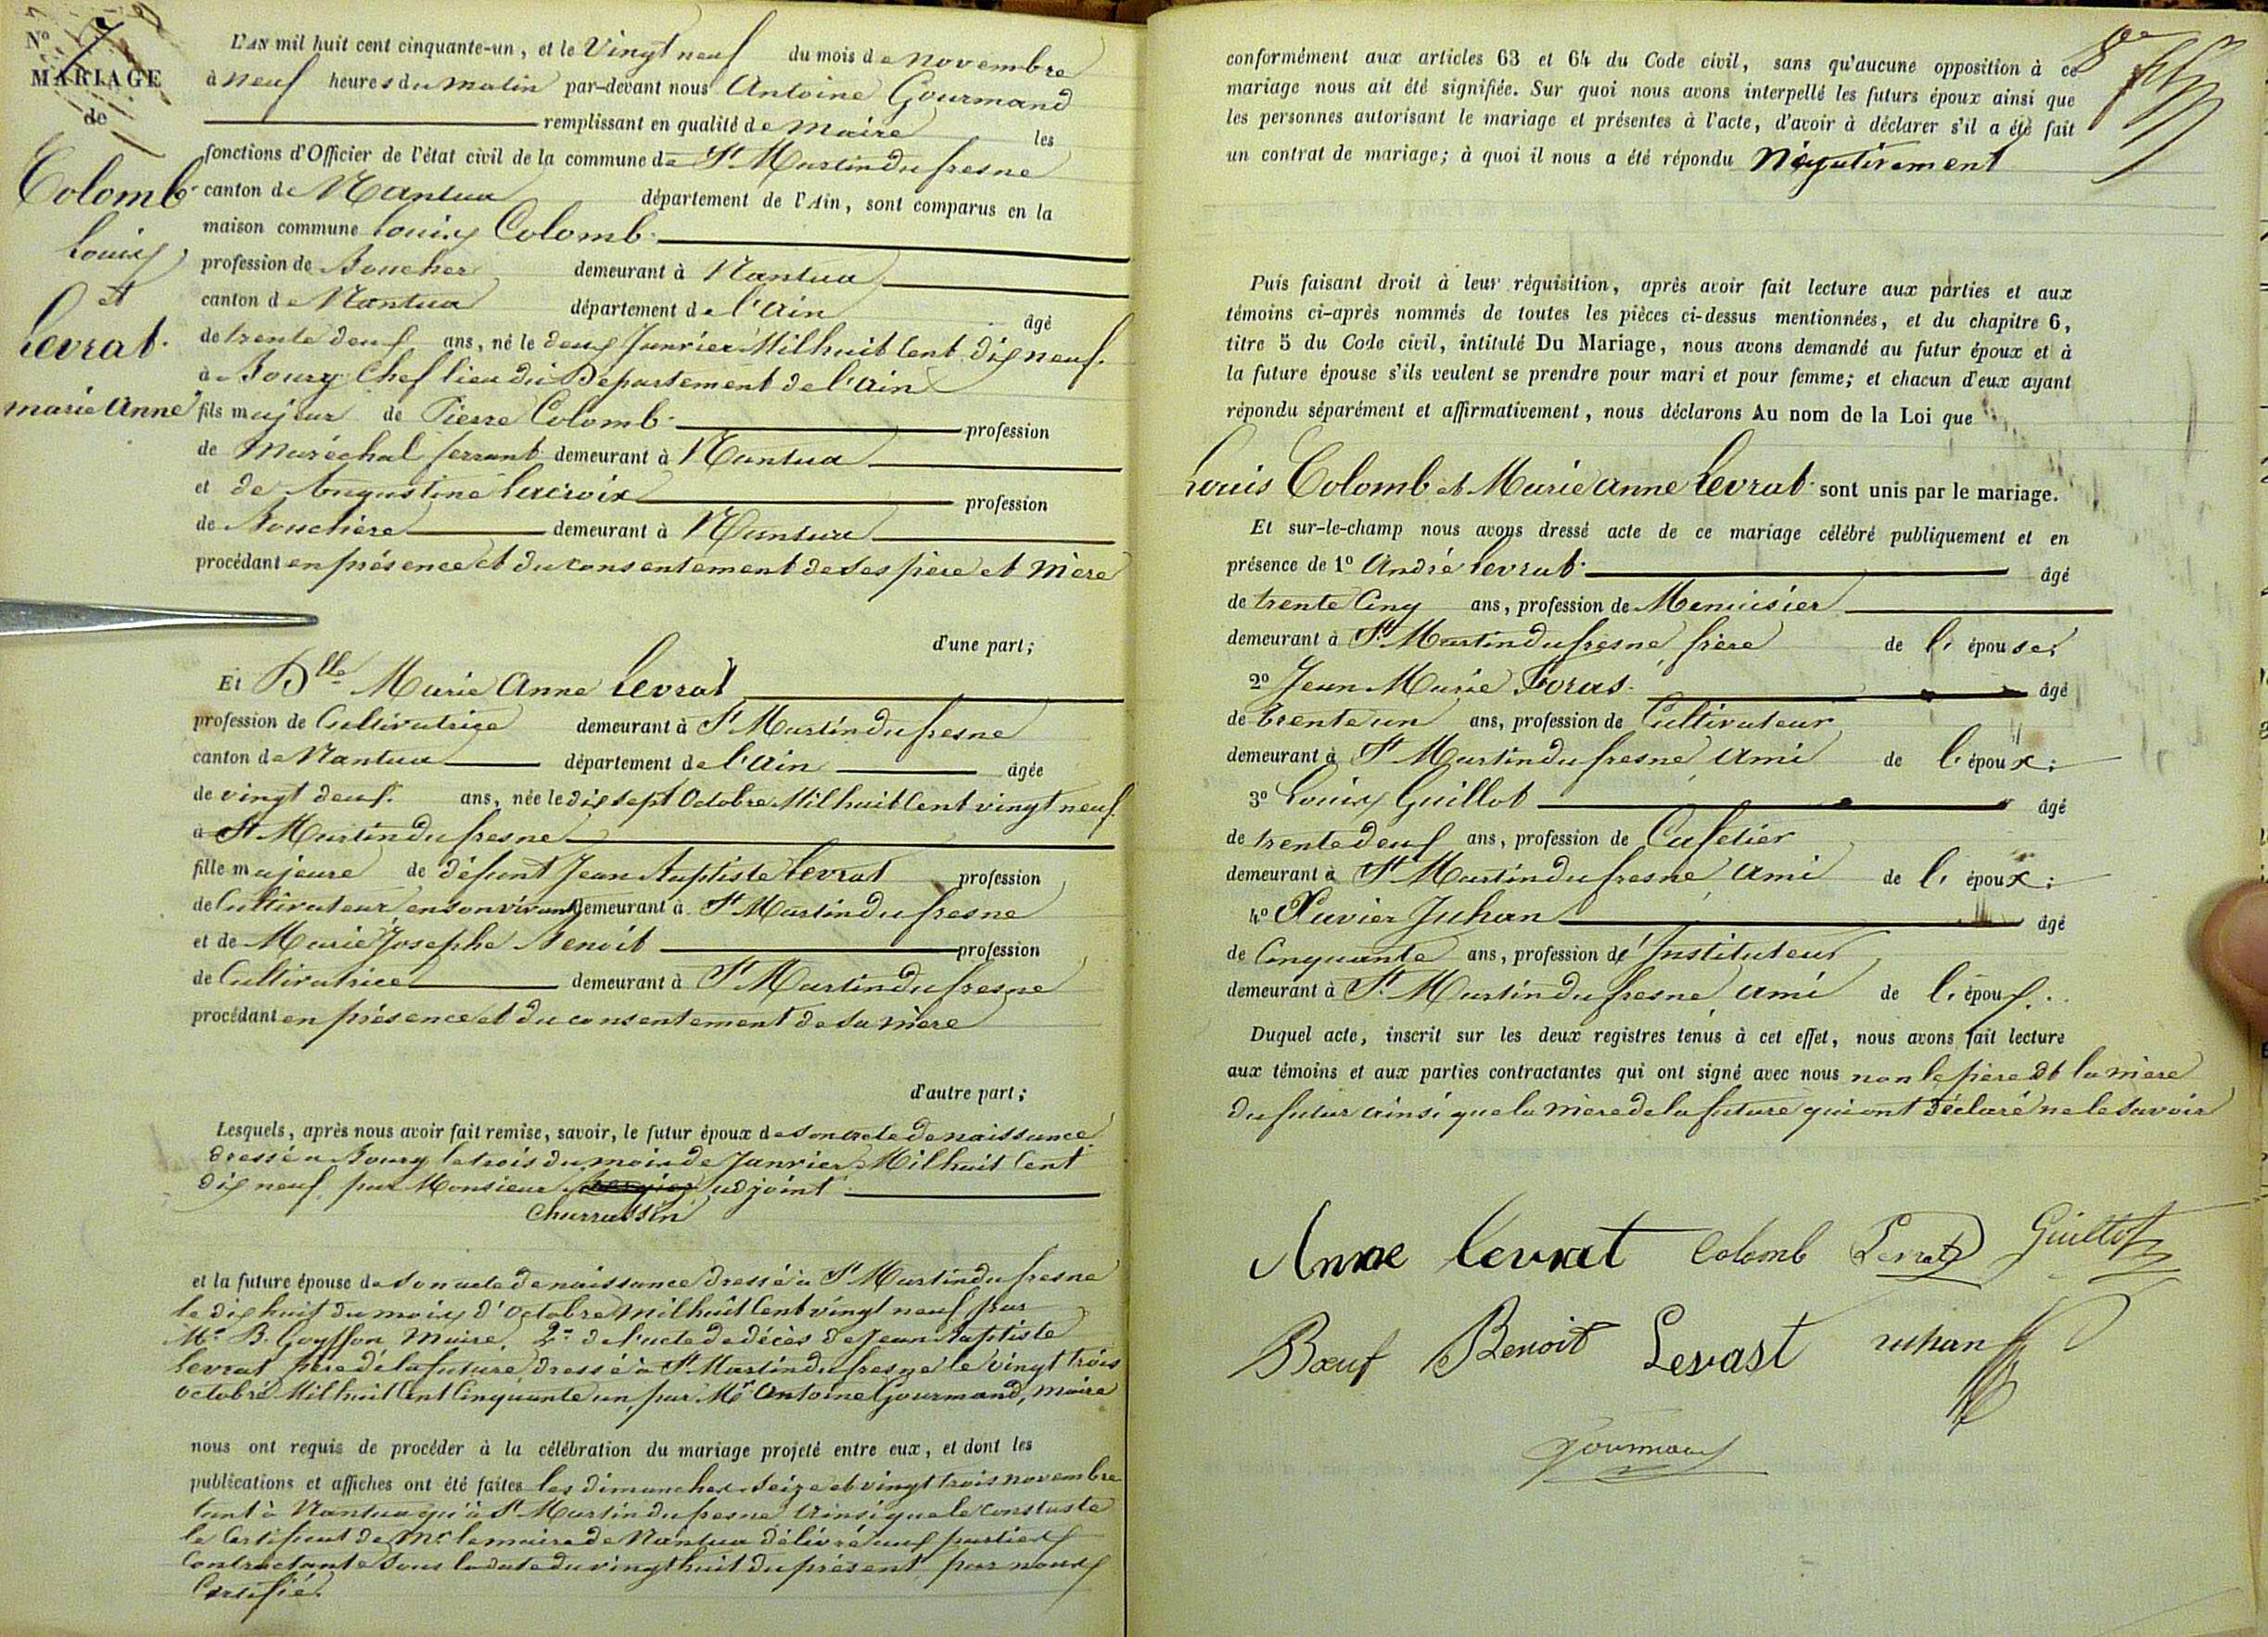 No 7
MARIAGE
de
Colomb
Louis
et
Levrat
marie Anne
L'AN mil huit cent cinquante-un, et le Vingt neuf du mois de novembre
à neuf heures du matin par-devant nous Antoine Gourmand
remplissant en qualité de maire les
fonctions d'Officier de l'état civil de la commune de St Martin du fresne
canton de Nantua département de l'Ain, sont comparus en la
maison commune Louis Colomb
profession de Boucher demeurant à Nantua
canton de Nantua département de l'Ain âgé
de trente deux ans, né le deux Janvier Mil huit Cent dix neuf
à Bourg Chef lieu du Département de l'ain
fils majeur de Pierre Colomb profession
de Maréchal ferrant demeurant à Nantua
et de Augustine Lacroix profession
de Bouchère demeurant à Nantua
procédant en présence et du consentement de ses père et Mère
d'une part;
Et Dlle Marie Anne Levrat
profession de Cultivatrice demeurant à St Martin du fresne
canton de Nantua département de l'Ain âgée
de vingt deux ans, née le dix sept Octobre Mil huit Cent vingt neuf
à St Martin du fresne
fille majeure de défunt Jean Baptiste Levrat profession
de Cultivateur en son vivant demeurant à St Martin du fresne
et de Marie Josephe Benoit profession
de Cultivatrice demeurant à St Martin du fresne
procédant en présence et du consentement de sa mère
d'autre part;
Lesquels, après nous avoir fait remise, savoir, le futur époux de son acte de naissance
dressé a Bourg le trois du mois de Janvier Mil huit Cent
dix neuf par Monsieur adjoint
Charrassin
et la future épouse de son acte de naissance dressé à St Martin du fresne
le dix huit du mois d'Octobre mil huit Cent vingt neuf par
Mr B. Goyffon Maire, 2o de l'acte de décès de Jean Baptiste
Levrat père de la future dressé à St Martin du fresne le vingt trois
octobre Mil huit Cent Cinquante un, par Mr Antoine Gourmand, maire
nous ont requis de procéder à la célébration du mariage projeté entre eux, et dont les
publications et affiches ont été faites les dimanches seize et vingt trois novembre
tant à Nantua qu'à St Martin du fresne ainsi que le constate
le Certificat de Mr le maire de Nantua délivré aux parties
Contractante sous la date du vingt huit du présent par nous
Certifié.
conformément aux articles 63 et 64 du Code civil, sans qu'aucune opposition à ce
mariage nous ait été signifiée. Sur quoi nous avons interpellé les futurs époux ainsi que
les personnes autorisant le mariage et présentes à l'acte, d'avoir à déclarer s'il a été fait
un contrat de mariage; à quoi il nous a été répondu Négativement
Puis faisant droit à leur réquisition, après avoir fait lecture aux parties et aux
témoins ci-après nommés de toutes les pièces ci-dessus mentionnées, et du chapitre 6,
titre 5 du Code civil, intitulé Du Mariage, nous avons demandé au futur époux et à
la future épouse s'ils veulent se prendre pour mari et pour femme; et chacun d'eux ayant
répondu séparément et affirmativement, nous déclarons Au nom de la Loi que
Louis Colomb et Marie anne Levrat sont unis par le mariage.
Et sur-le-champ nous avons dressé acte de ce mariage célébré publiquement et en
présence de 1o André Levrat âgé
de trente Cinq ans, profession de Menuisier
demeurant à St Martin du fresne frère de l'épouse;
2o Jean Marie Foras âgé
de trente un ans, profession de Cultivateur
demeurant à St Martin du fresne ami de l'époux;
3o Louis Guillot âgé
de trente deux ans, profession de Cafetier
demeurant à St Martin du fresne ami de l'époux;
4o Xavier Juhan âgé
de Cinquante ans, profession d'Instituteur
demeurant à St Martin du fresne ami de l'époux.
Duquel acte, inscrit sur les deux registres tenus à cet effet, nous avons fait lecture
aux témoins et aux parties contractantes qui ont signé avec nous non le père et la mère
du futur ainsi que la mère de la future qui ont déclaré ne le savoir
Anne Levrat Colomb Levrat Guillot
Bœuf Benoit Levrast Juhan
Gourmand